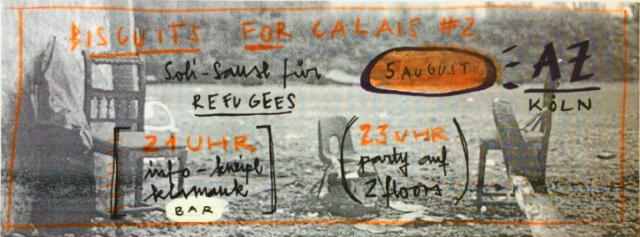 BISCUITS FOR CALAIS #2
Soli-Sause für
REFUGEES
5 AUGUST
AZ
KÖLN
21 UHR
info-kneipe
klamauk
BAR
23 UHR
party auf
2 floors